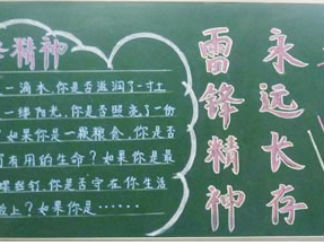 精神
一滴水,你是否滋润了一寸土
一缕阳光,你是否照亮了一份
?如果你是一颗粮食,你是否
有用的生命?如果你是最
螺丝钉,你是否守在你生活
上?如果你是……
雷锋精神
永远长存